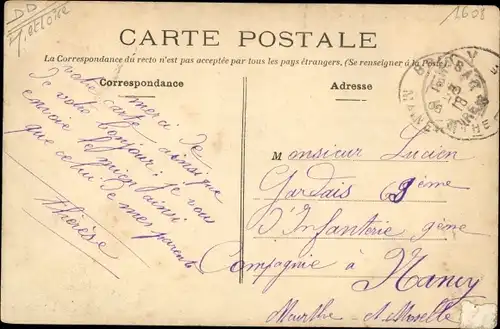 DD
M. et Loire
1608
CARTE POSTALE
La Correspondance du recto n'est pas acceptée par tous les pays étrangers, (Se renseigner à la Poste)
Correspondance
Adresse
merci de
votre carte ainsi que
de votre bonjour; je vous
envoie le mien ainsi
que celui de mes parents
Thérèse
Monsieur Lucien
Gardais 69ème
d'Infanterie 9ème
Compagnie à Nancy
Meurthe et Moselle